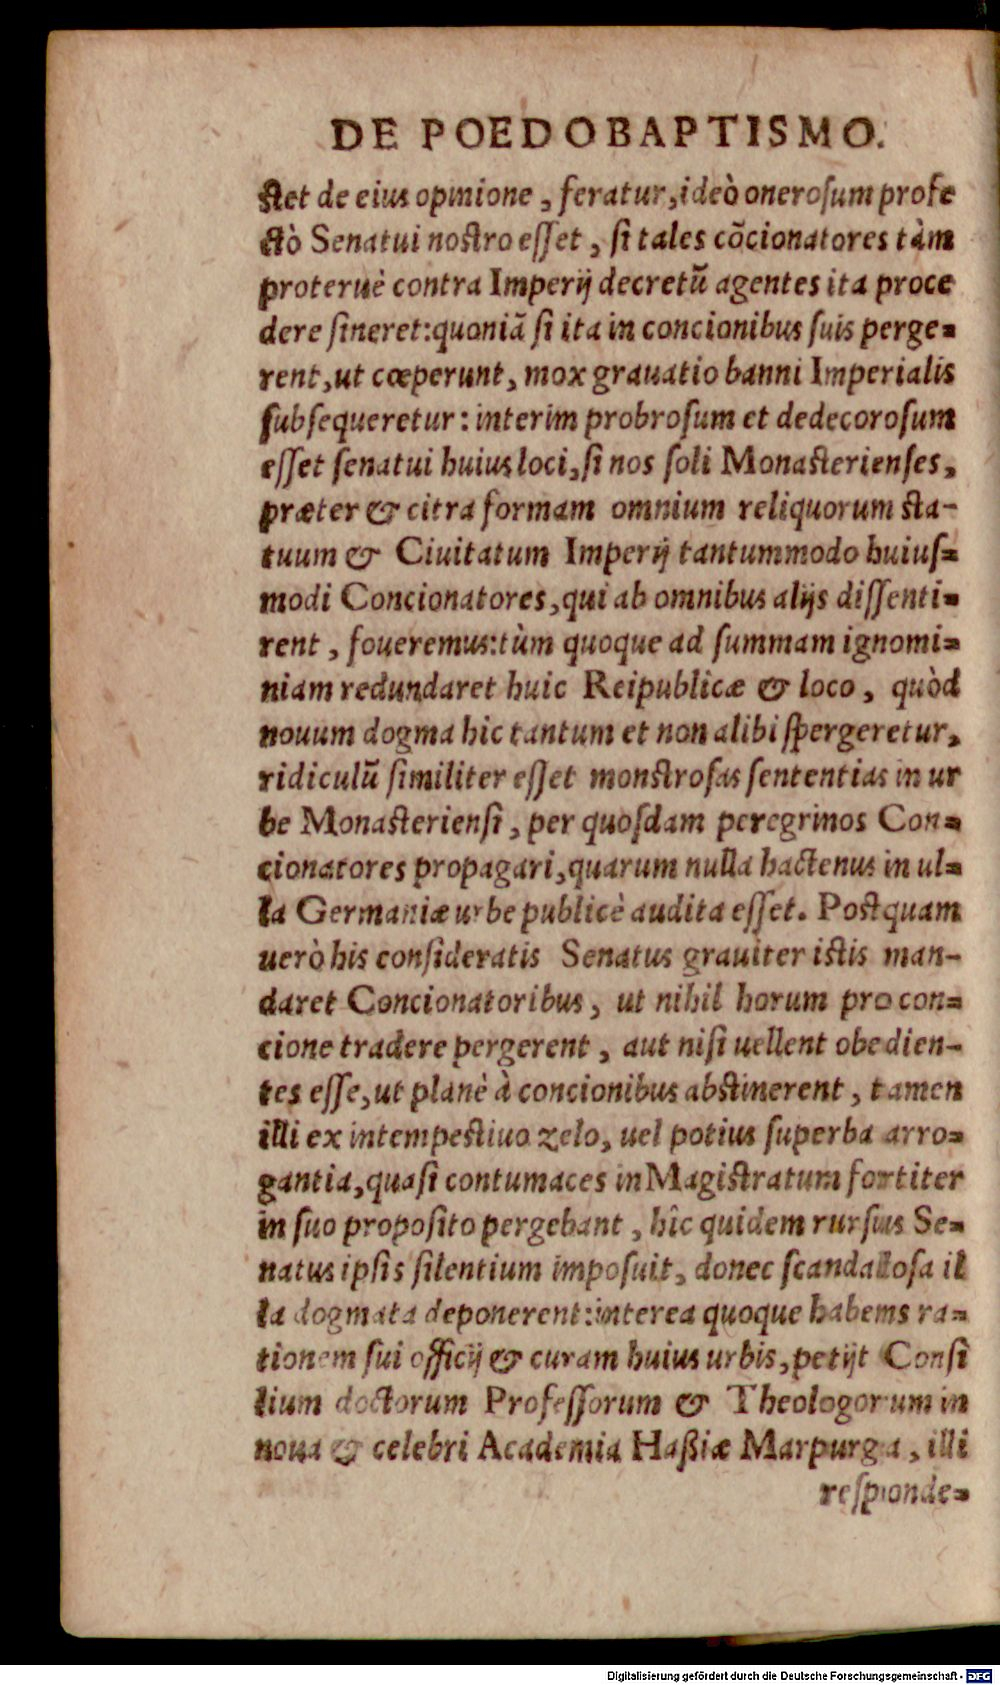 DE POEDOBAPTISMO.
stet de eius opinione, feratur, ideò onerosum profe
ctò Senatui nostro esset, si tales cõcionatores tàm
proteruè contra Imperij decretũ agentes ita proce
dere sineret: quoniã si ita in concionibus suis perge=
rent, ut cœperunt, mox grauatio banni Imperialis
subsequeretur: interim probrosum et dedecorosum
esset senatui huius loci, si nos soli Monasterienses,
præter & citra formam omnium reliquorum sta-
tuum & Ciuitatum Imperij tantummodo huius=
modi Concionatores, qui ab omnibus alijs dissenti=
rent, foueremus: tùm quoque ad summam ignomi=
niam redundaret huic Reipublicæ & loco, quòd
nouum dogma hic tantum et non alibi spergeretur,
ridiculũ similiter esset monstrosas sententias in ur
be Monasteriensi, per quosdam peregrinos Con=
cionatores propagari, quarum nulla hactenus in ul=
la Germaniæ urbe publicè audita esset. Postquam
uerò his consideratis Senatus grauiter istis man-
daret Concionatoribus, ut nihil horum pro con=
cione tradere pergerent, aut nisi uellent obedien-
tes esse, ut planè à concionibus abstinerent, tamen
illi ex intempestiuo zelo, uel potius superba arro=
gantia, quasi contumaces in Magistratum fortiter
in suo proposito pergebant, hîc quidem rursus Se=
natus ipsis silentium imposuit, donec scandalosa il
la dogmata deponerent: interea quoque habems ra=
tionem sui officij & curam huius urbis, petijt Consi
lium doctorum Professorum & Theologorum in
noua & celebri Academia Haßiæ Marpurga, illi
responde=
Digitalisierung gefördert durch die Deutsche Forschungsgemeinschaft - DFG